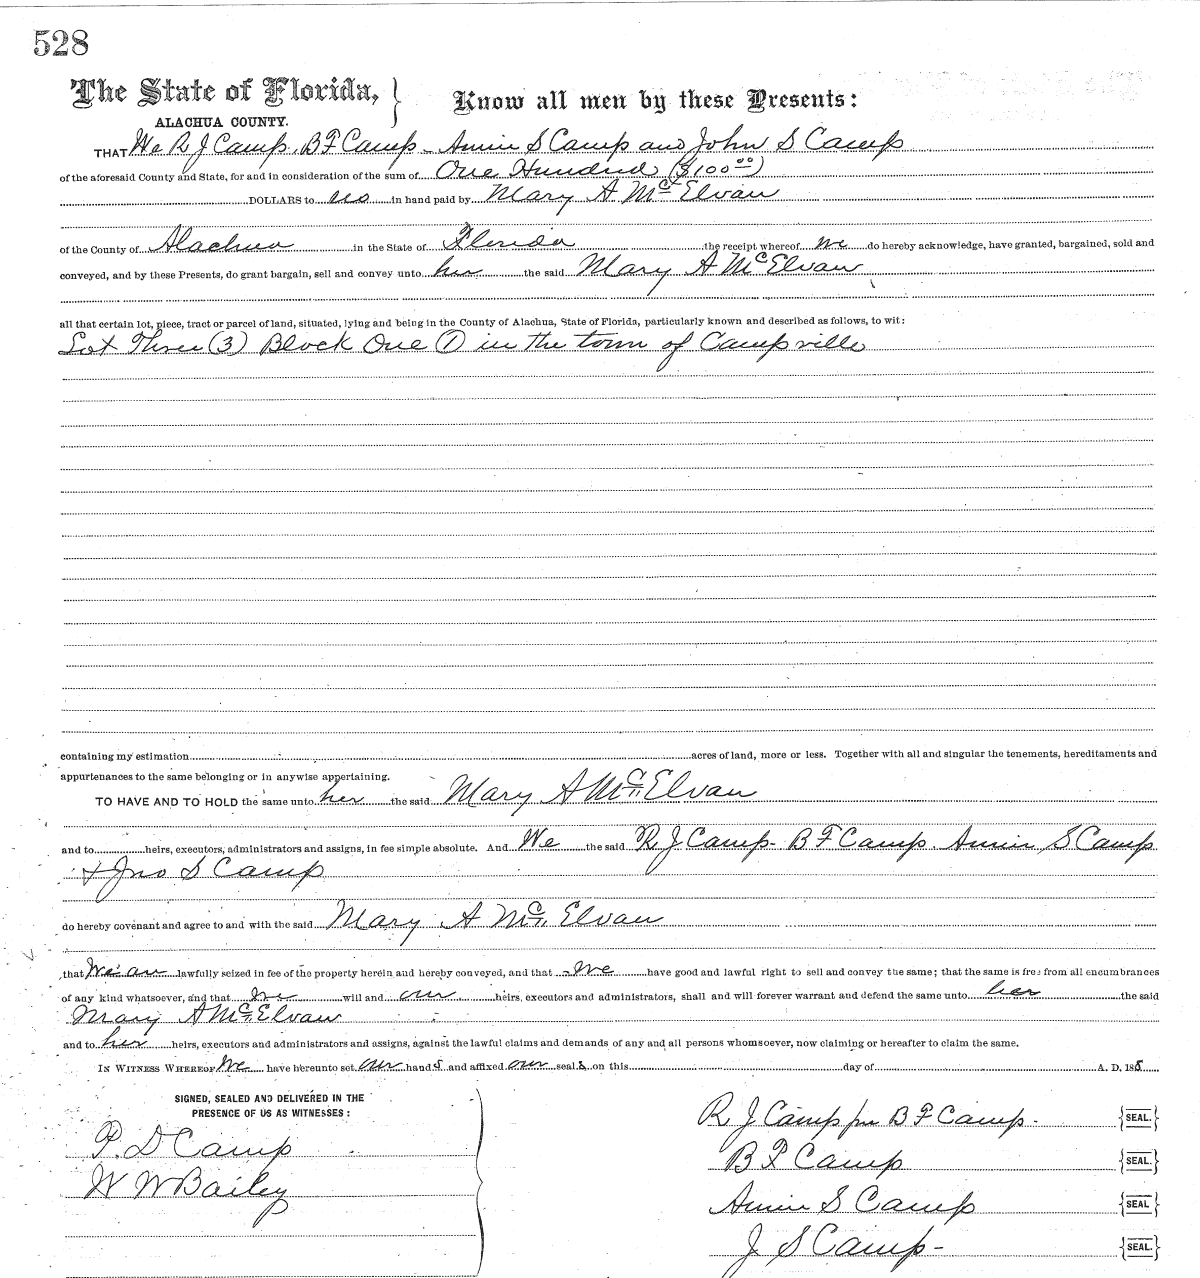 528
The State of Florida, } Know all men by these Presents:
ALACHUA COUNTY.
THAT We R J Camp, B F Camp - Annie S Camp and John S Camp
of the aforesaid County and State, for and in consideration of the sum of One Hundred ($100 00)
DOLLARS to us in hand paid by Mary A Mc Elvan
of the County of Alachua in the State of Florida the receipt whereof we do hereby acknowledge, have granted, bargained, sold and
conveyed, and by these Presents, do grant bargain, sell and convey unto her the said Mary A Mc Elvan
all that certain lot, piece, tract or parcel of land, situated, lying and being in the County of Alachua, State of Florida, particularly known and described as follows, to wit:
Lot Three (3) Block One (1) in the town of Campville
containing my estimation acres of land, more or less. Together with all and singular the tenements, hereditaments and
appurtenances to the same belonging or in anywise appertaining.
TO HAVE AND TO HOLD the same unto her the said Mary A Mc Elvan
and to heirs, executors, administrators and assigns, in fee simple absolute. And We the said R. J Camp - B F Camp. Annie S Camp
+ Jno S Camp
do hereby covenant and agree to and with the said Mary A Mc Elvan
that We are lawfully seized in fee of the property herein and hereby conveyed, and that We have good and lawful right to sell and convey the same; that the same is free from all encumbrances
of any kind whatsoever, and that We will and our heirs, executors and administrators, shall and will forever warrant and defend the same unto her the said
Mary A Mc Elvan
and to her heirs, executors and administrators and assigns, against the lawful claims and demands of any and all persons whomsoever, now claiming or hereafter to claim the same.
IN WITNESS WHEREOF We have hereunto set our hands and affixed our seals on this day of A. D. 188
SIGNED, SEALED AND DELIVERED IN THE
PRESENCE OF US AS WITNESSES:
P. D Camp
W W Bailey
R J Camp per B F Camp - {SEAL.}
B F Camp {SEAL.}
Annie S Camp {SEAL}
J S Camp - {SEAL.}